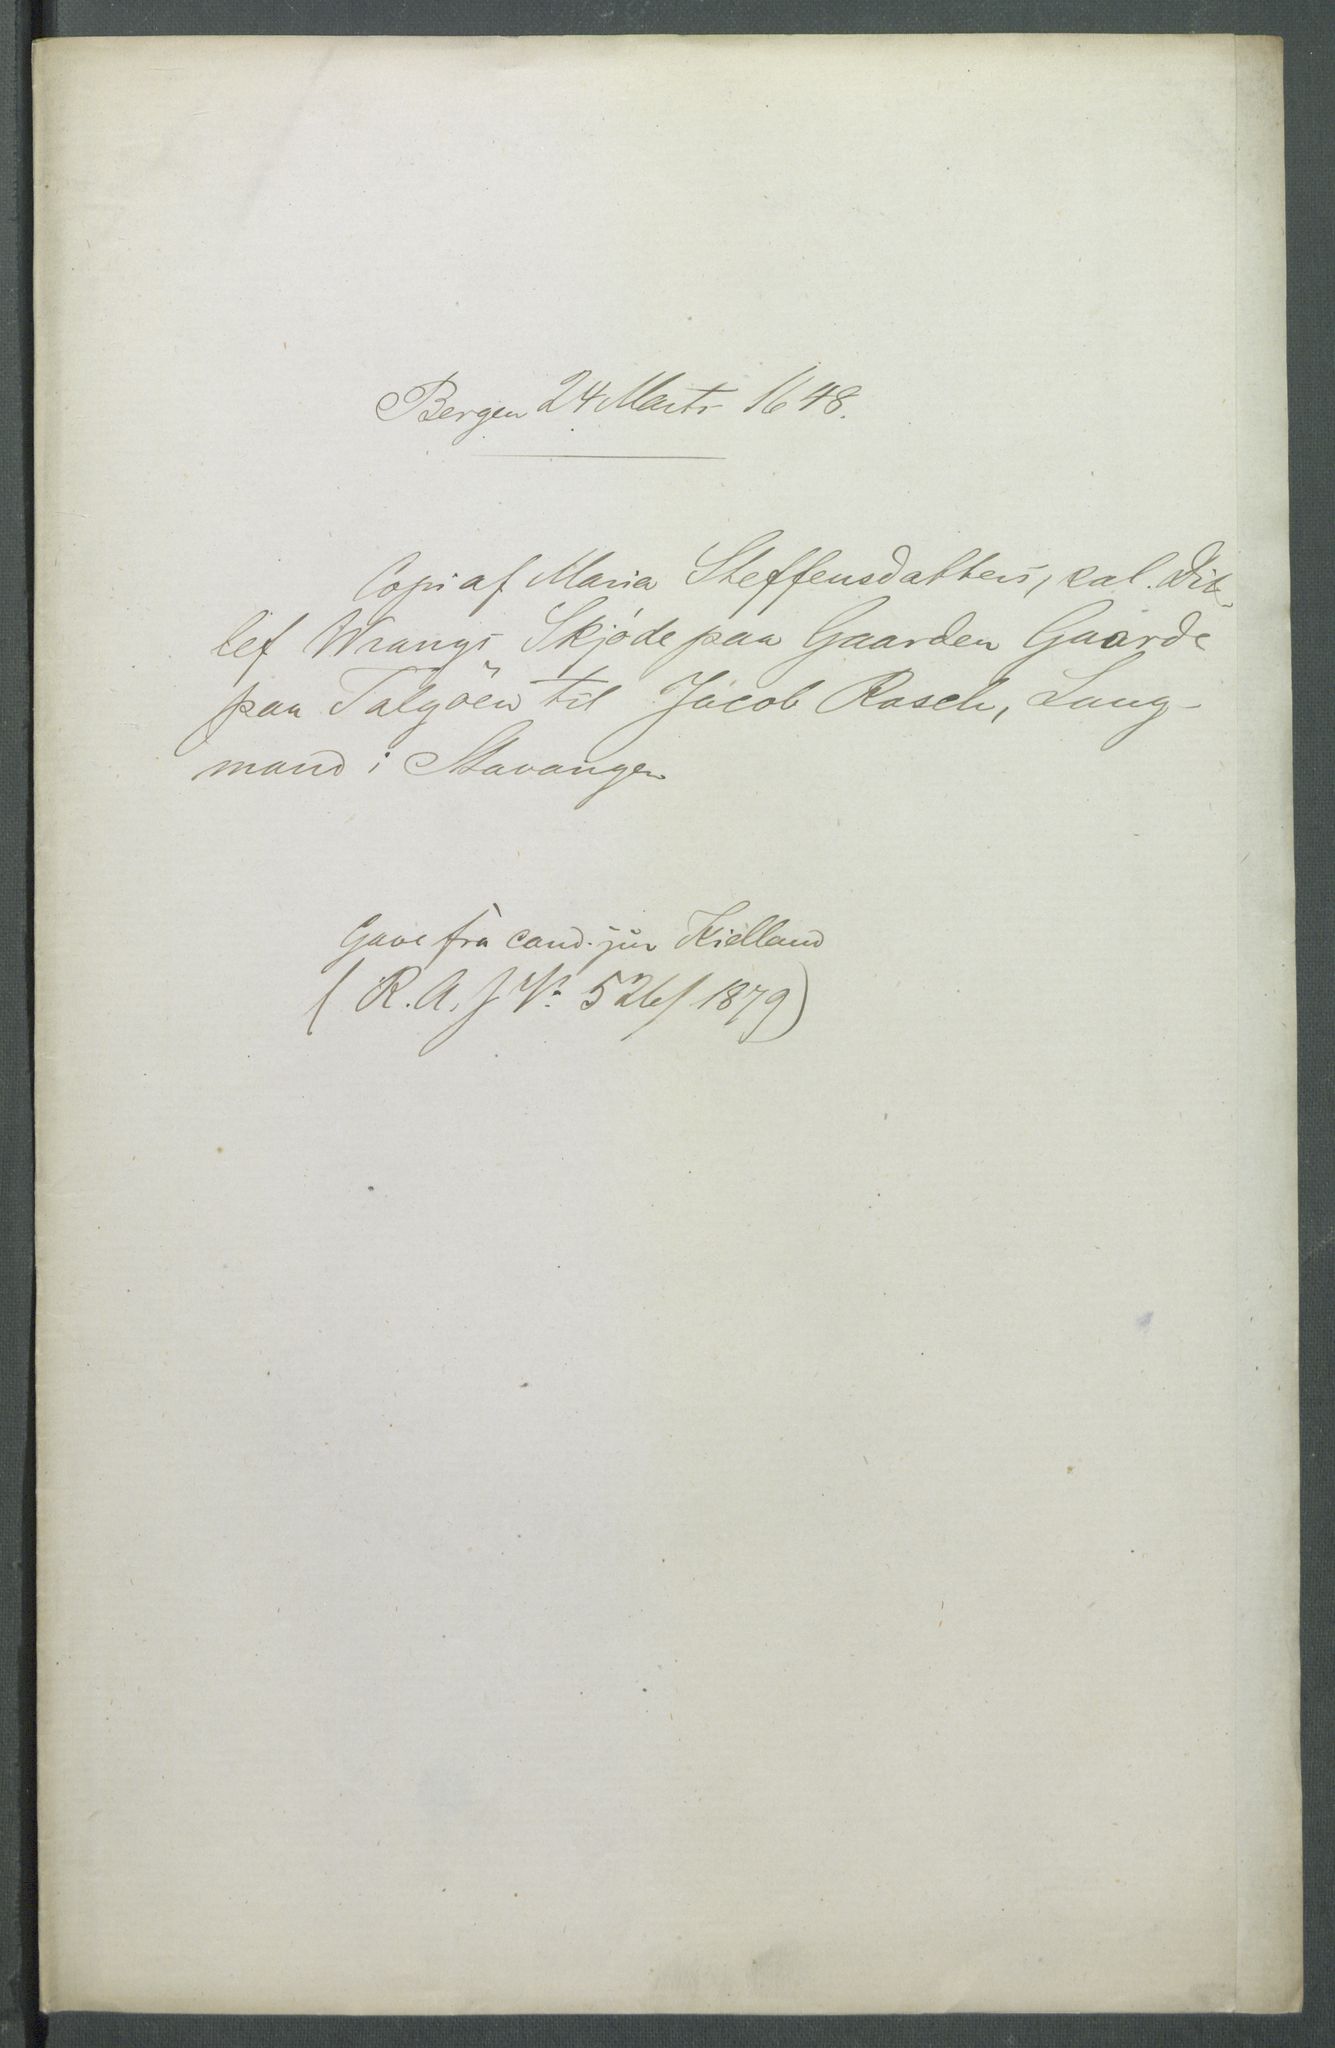 Bergen 24 Marts 1648.
Copi af Maria Steffensdatters, sal. Dit-
lef Wrangs Skjøde paa Gaarden Gaarde
paa Talgöen til Jacob Rasch, Laug-
mand i Stavanger
Gave fra cand. jur Kielland
(R. A. J Nº 526/1879)